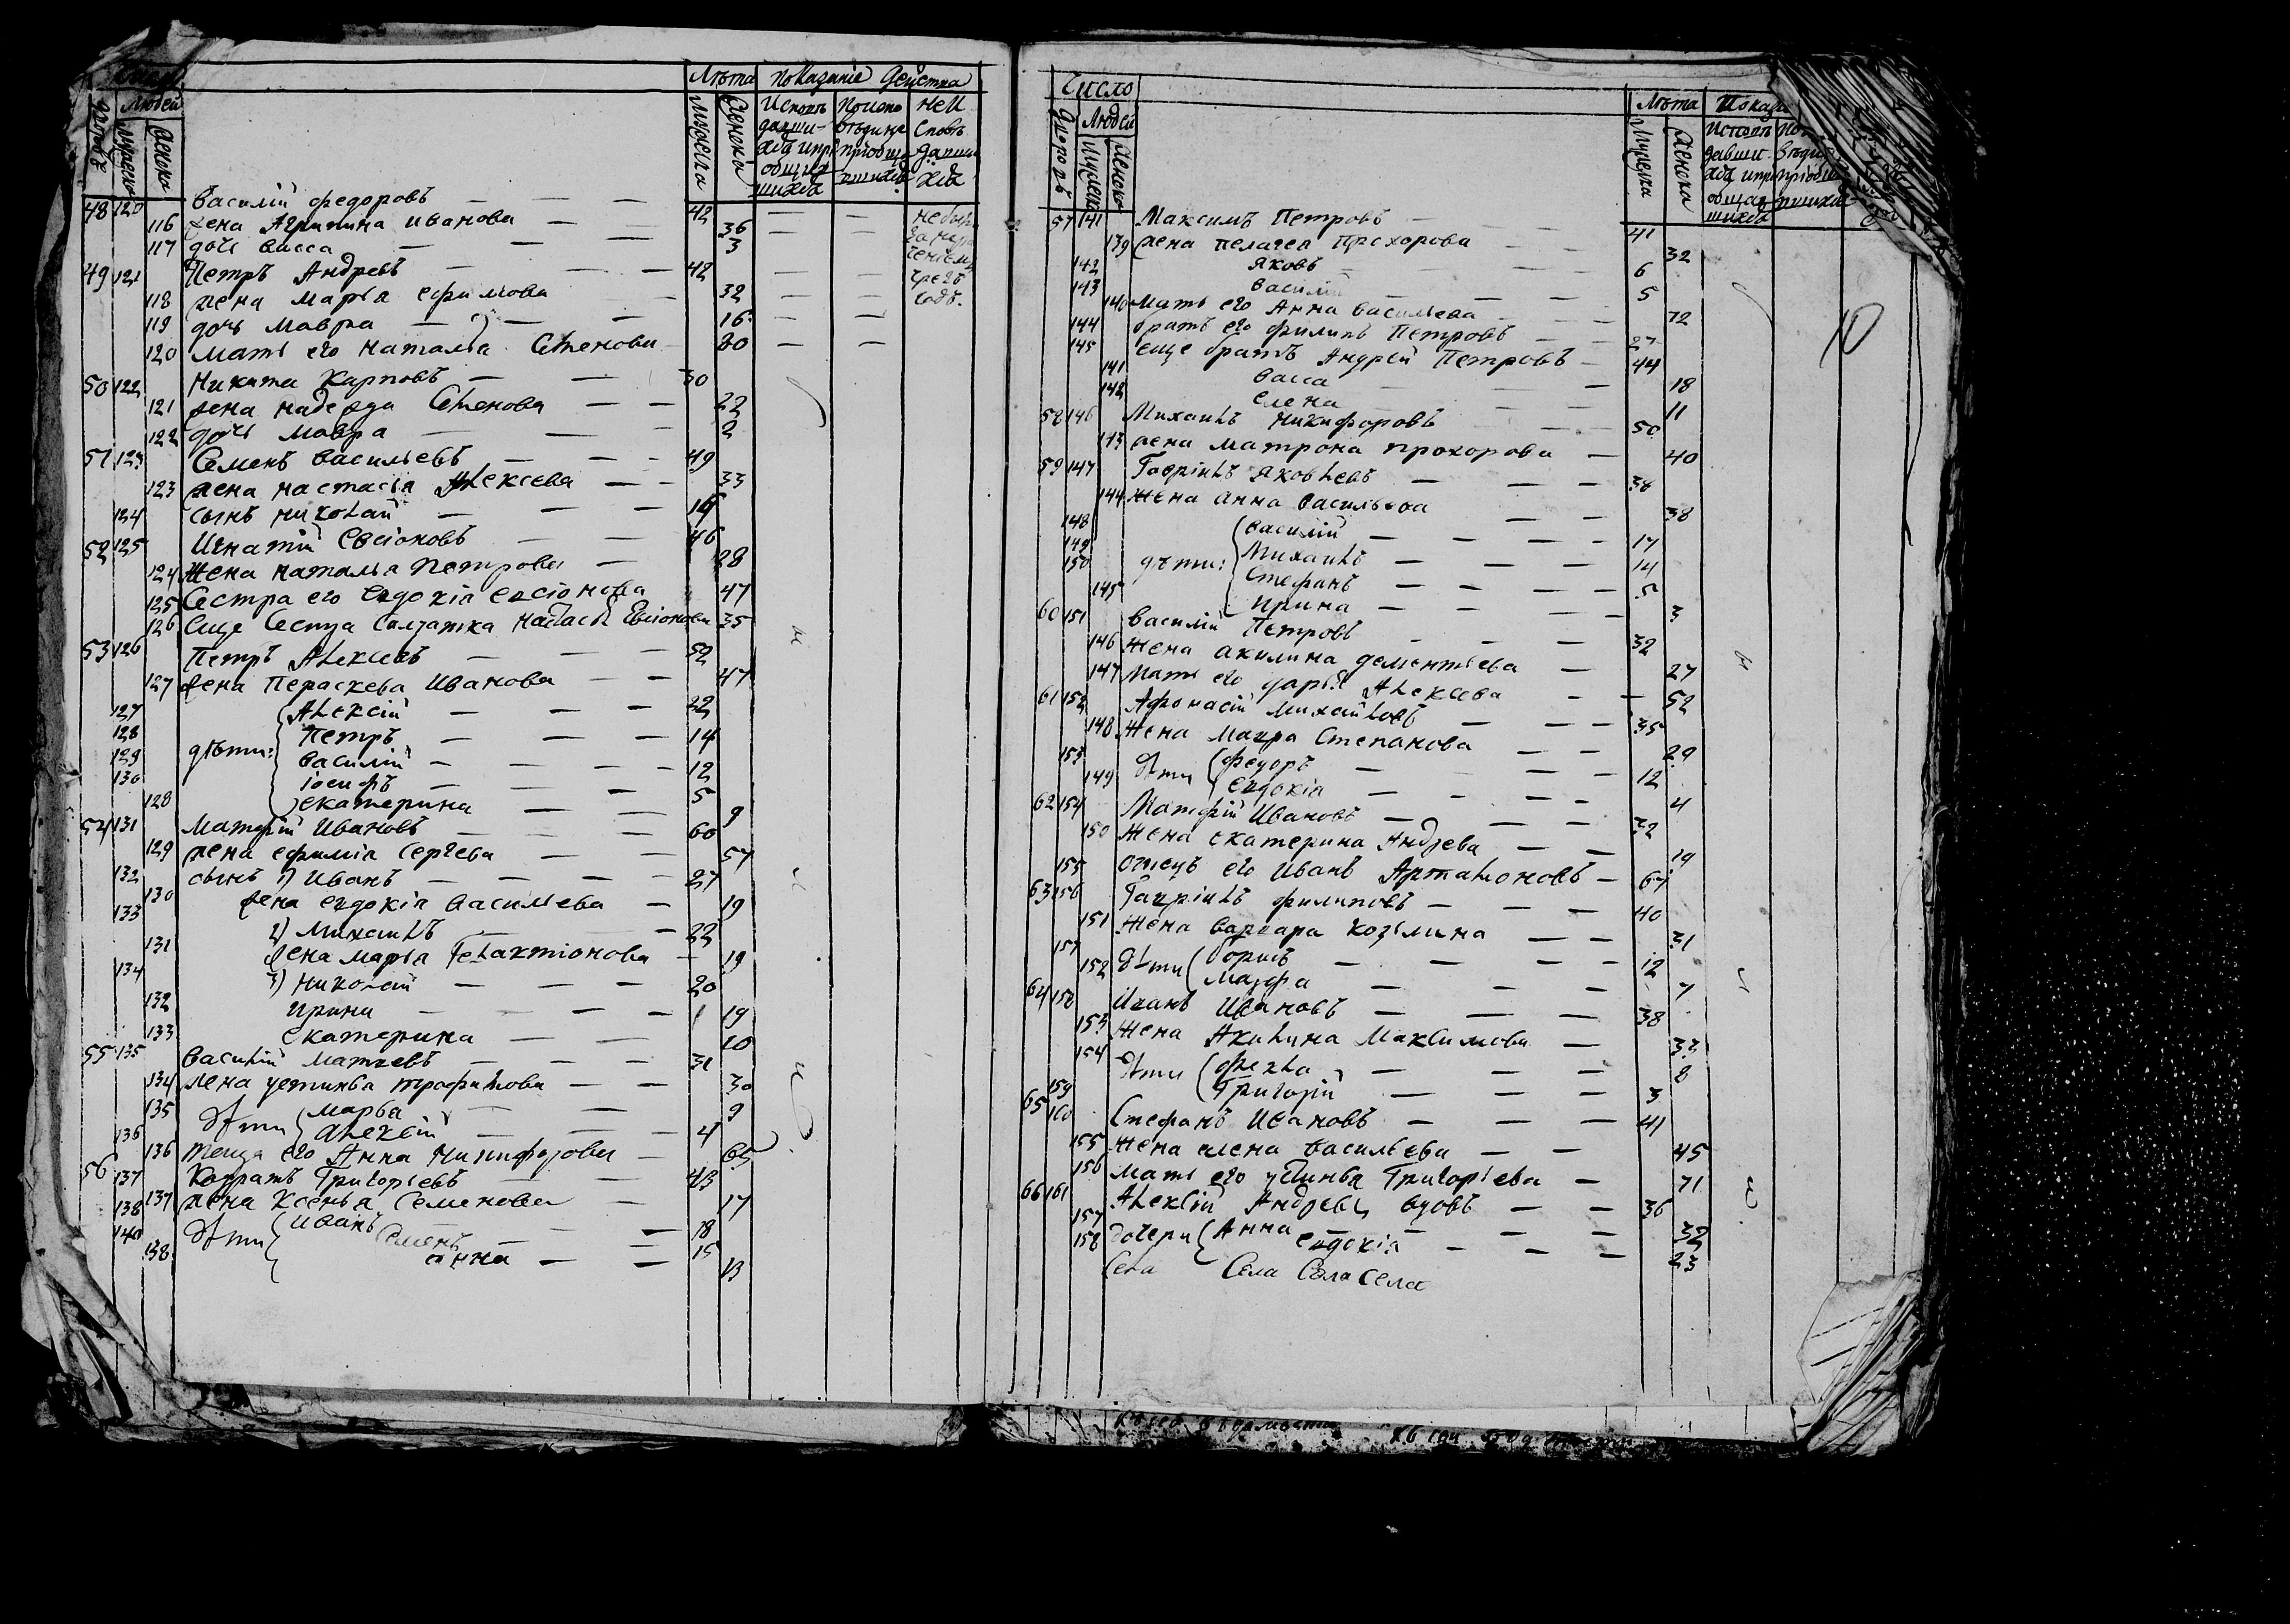 Лѣта Показаніе Действа
Людей
Мужеска Женска
48 120 Василій Федоровъ — — — 42 — — не был
116 жена Агрипина Иванова — — 36 — —
117 дочь Васса — — — 3
49 121 Петръ Андревъ — — — 42 — —
118 жена Марья Ефимова — 32 — —
119 дочь Мавра — — — 16 — —
120 Мать его Наталья Степенова 80 — —
50 122 Никита Карповъ — — 30
121 жена Надежда Степенова — — 22
122 дочь Мавра — — — 2
51 123 Семенъ Васильевъ — — — 49
123 жена Настасія Алексева — — 33
124 сынъ Николай — — — 14
52 125 Игнатій Евсіоновъ — — 46
124 Жена Наталья Петрова — 28
125 Сестра его Евдокія Евсіонова 47
126 Еще Сестра Салдатка Настасья Евсіонова 35
53 126 Петръ Алексевъ — — — 52
127 жена Пераскева Иванова — — 47
127 Алексій — — — 22
128 дѣти: Петръ — — — 14
129 Василій — — — 12
130 Іосифъ — — — 5
128 Екатерина — — — 9
54 131 Матфій Ивановъ — — — 60
129 жена Ефимія Сергева — — 57
132 сынъ 1) Иванъ — — — — 27
130 жена Евдокія Васильева — 19
133 2) Михаилъ — — — 22
131 жена Марья Гелахтіонова — 19
134 3) Николай — — — 20
132 Ирина — — — — 19
133 Екатерина — — — 10
55 135 Василій Матвевъ — — — 31
134 жена Устинья Трофимова — — 30
135 дѣти Марья — — 9
136 Алексій — — — 4
136 теща его Анна Никифорова — 65
56 137 Кодратъ Григорьевъ — — 43
137 жена Ксенья Семенова — 17
138 дѣти Иванъ — — 18
140 Семенъ — — 15
138 Анна — — 13
Число
Людей
Лѣта Показа
Мужеска Женска
57 141 Максимъ Петровъ — 41
139 жена Пелагея Прохорова — — — 32
142 Яковъ — — — 6
143 Василій — — — 5
140 Мать его Анна Васильева — — — 72
144 братъ его Филипъ Петровъ — — 27
145 еще братъ Андрей Петровъ — 44
141 Васса — — 18
142 Елена — — — 11
58 146 Михаилъ Никифоровъ — — 50
143 жена Матрона Прохорова — 40
59 147 Гаврілъ Яковлевъ — — — 38
144 Жена Анна Васильева — — 38
148 Василій — — — — 17
149 дѣти: Михаилъ — — — — 14
150 Стефанъ — — — — 5
145 Ирина — — — — 3
60 151 Василій Петровъ — — — 32
146 Жена Акилина Дементьева — 27
147 Мать его Дарья Алексева — — 52
61 152 Афонасій Михайловъ — — — 35
148 Жена Мавра Степанова — — 29
153 дѣти Федоръ — — — 12
149 Евдокія — — — — 4
62 154 Матфій Ивановъ — — — 32
150 Жена Екатерина Андрева — — 19
155 отецъ его Иванъ Артамоновъ — 67
63 156 Гаврілъ Филиповъ — — — 40
151 Жена Варвара Козьмина — — 31
157 дѣти Борисъ — — — 12
152 Марфа — — — 7
64 158 Иванъ Ивановъ — — — 38
153 Жена Акилина Максимова — 32
154 дѣти Фекла — — — 8
159 Григорій — — — 3
65 160 Стефанъ Ивановъ — — — 41
155 Жена Елена Васильева — — 45
156 Мать его Устинья Григорьева — 71
66 161 Алексій Андревъ вдовъ — — 36
157 дочери Анна — — — 32
158 Евдокія — — — 23
Села Села Села
10